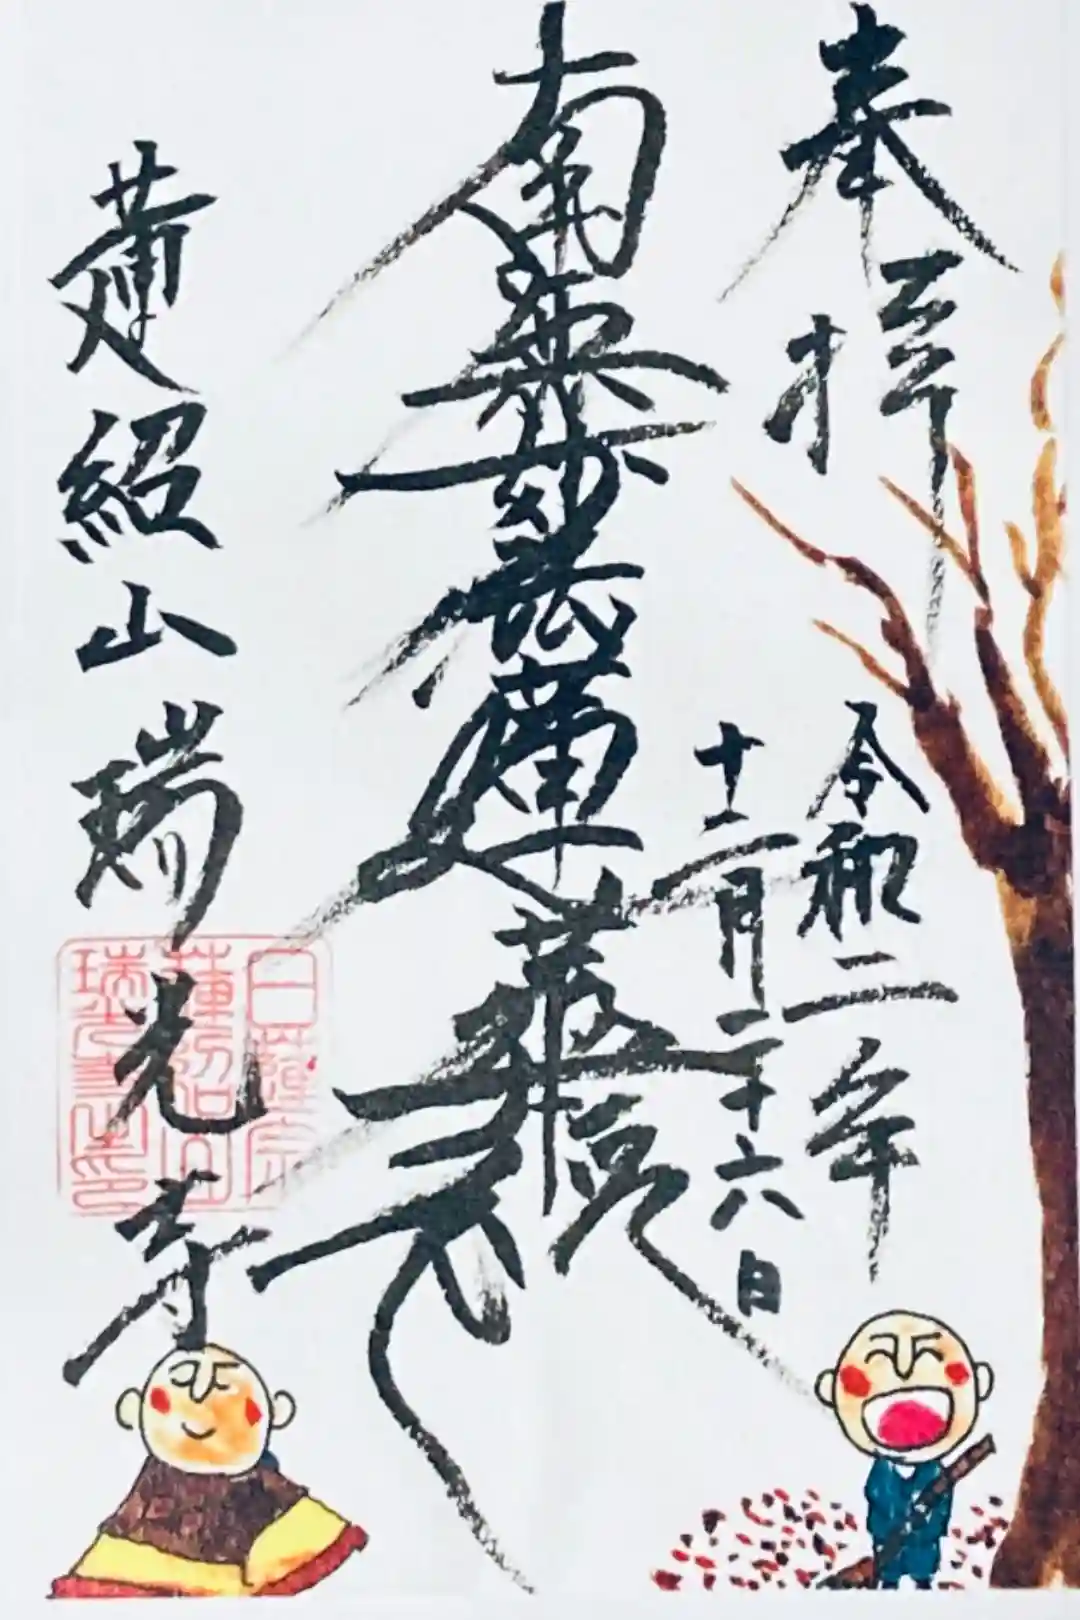 奉拝
令和二年
十二月二十六日
南無妙法蓮華経
蓮紹山瑞光寺
日蓮宗
蓮紹山
瑞光寺之印